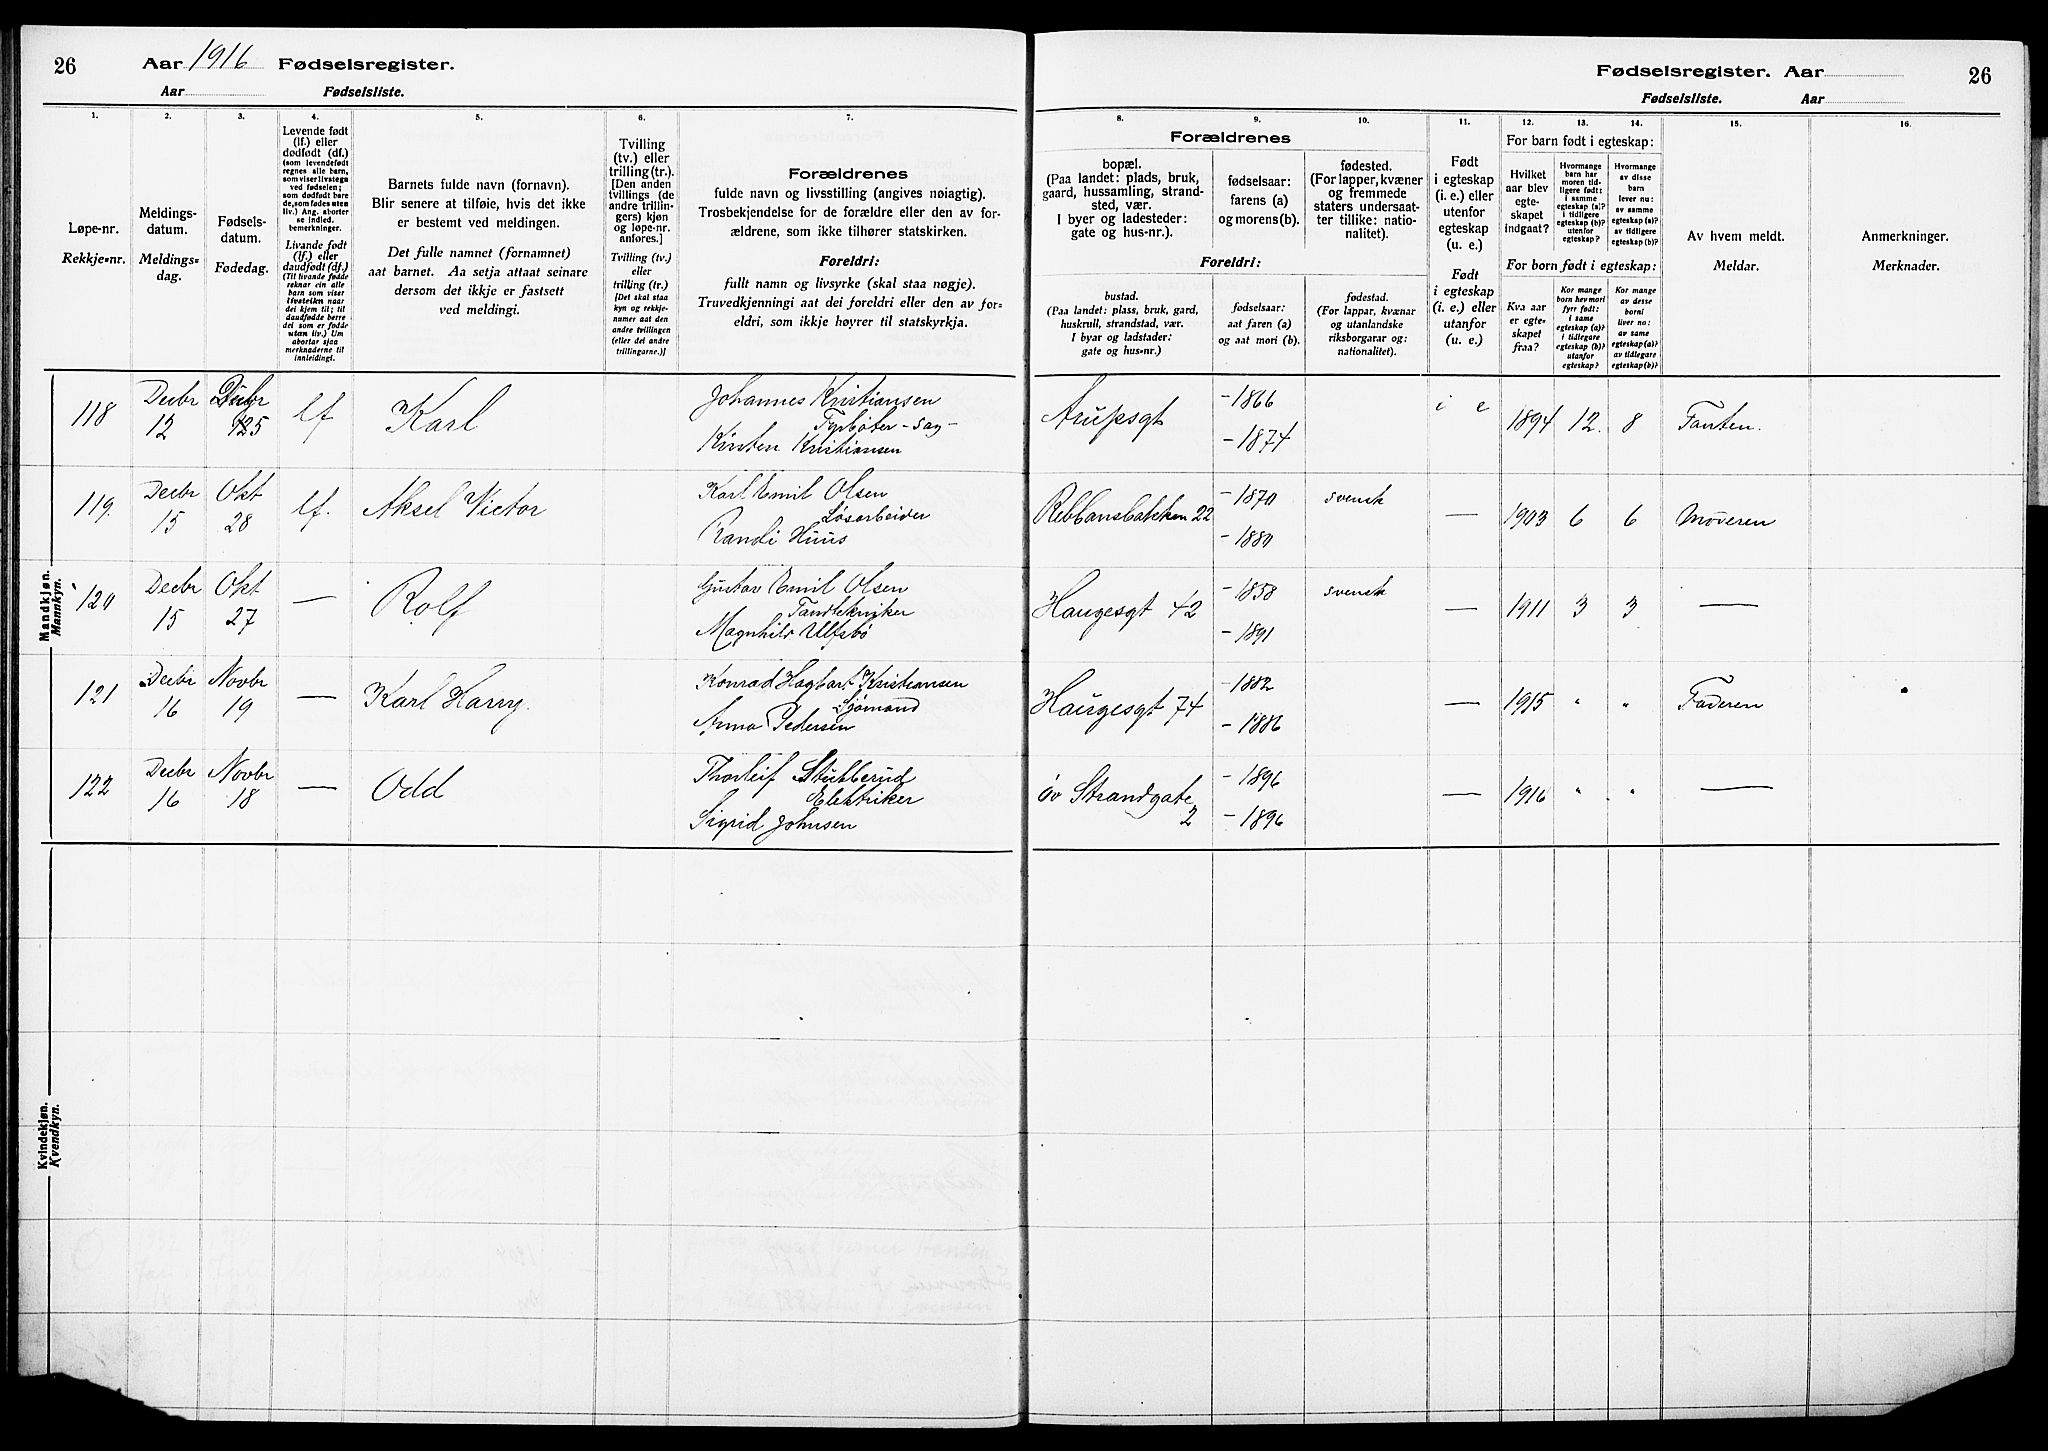 26 Aar 1916 Fødselsregister.
Aar Fødselsliste.
Fødselsregister. Aar 26
Fødselsliste. Aar
1. 2. 3. 4. 5. 6. 7.
Løpe-nr.
Rekkje-nr.
Meldings-
datum.
Meldings-
dag.
Fødsels-
datum.
Fødedag.
Levende født
(lf.) eller
dødfødt (df.)
(som levendefødt
regnes alle barn,
som viser livstegn
ved fødselen;
som dødfødt bare
de, som fødes uten
liv.) Ang. aborter
se indled.
bemerkninger.
Livande født
(lf.) eller
daudfødt (df.)
(Til livande fødde
reknar ein alle
born som viser
livsteikn naar
dei kjem til; til
daudfødde berre
dei som er fødde
utan liv.) Um
abortar sjaa
merknaderne til
innleidingi.
Barnets fulde navn (fornavn).
Blir senere at tilføie, hvis det ikke
er bestemt ved meldingen.
Det fulle namnet (fornamnet)
aat barnet. Aa setja attaat seinare
dersom det ikkje er fastsett
ved meldingi.
Tvilling
(tv.) eller
trilling (tr.).
[Den anden
tvillings (de
andre trillin-
gers) kjøn
og løpe-nr.
anføres.]
Tvilling (tv.)
eller
trilling (tr.)
[Det skal staa
kyn og rekkje-
numer aat den
andre tvillingen
(eller dei andre
trillingarne.)]
Forældrenes
fulde navn og livsstilling (angives nøiagtig).
Trosbekjendelse for de forældre eller den av for-
ældrene, som ikke tilhører statskirken.
Foreldri:
fullt namn og livsyrke (skal staa nøgje).
Truvedkjenningi aat dei foreldri eller den av for-
eldri, som ikkje høyrer til statskyrkja.
8. 9. 10. 11. 12. 13. 14. 15. 16.
Forældrenes
bopæl.
(Paa landet: plads, bruk,
gaard, hussamling, strand-
sted, vær.
I byer og ladesteder:
gate og hus-nr.).
fødselsaar:
farens (a)
og morens (b).
fødested.
(For lapper, kvæner
og fremmede
staters undersaat-
ter tillike: natio-
nalitet).
Foreldri:
bustad.
(Paa landet: plass, bruk, gard,
huskrull, strandstad, vær.
I byar og ladstader:
gate og hus-nr.)
fødselsaar:
aat faren (a)
og aat mori (b).
fødestad.
(For lappar, kvænar
og utanlandske
riksborgarar og:
nationalitet).
Født
i egteskap
(i. e.) eller
utenfor
egteskap
(u. e.)
Født
i egteskap
(i. e.) eller
utanfor
(u. e.)
For barn født i egteskap:
Hvilket
aar blev
egte-
skapet
indgaat?
Hvormange
barn har
moren tid-
ligere født:
i samme
egteskap (a)?
i tidligere
egteskap (b)?
utenfor
egteskap?
Hvormange
av disse
barn
lever nu:
av samme
egteskap (a)?
av tidligere
egteskap (b)?
For born født i egteskap:
Kva aar
er egte-
skapet
fraa?
Kor mange
born hev mori
fyrr født:
i same
egteskap (a)?
i tidlegare
egteskap (b)?
utanfor
egteskap?
Kor mange
av desse
borni
liver no:
av same
egteskap (a)?
av tidlegare
egteskap (b)?
Av hvem meldt.
Meldar.
Anmerkninger.
Merknader.
Mandkjøn.
Mannkyn.
118 Decbr 12 Decbr 5 lf Karl Johannes Kristiansen
Fyrbøter - sag -
Kirsten Kristiansen Arupsgt - 1866 - 1874 i e 1894 12. 8 Tanten.
119. Decbr 15 Okt 28 lf. Aksel Victor Karl Emil Olsen
Løsarbeider
Randi Huus Rebbansbakken 22 - 1870 - 1880 svensk — 1903 6 6 Moderen
120 Decbr 15 Okt 27 — Rolf Gustav Emil Olsen
Tandtekniker
Magnhild Ulfsbö Haugesgt 42 - 1858 - 1891 svensk — 1911 3 3 —
121 Decbr 16 Novbr 19 — Karl Harry. Konrad Hagbart Kristiansen
Sjømand
Anna Pedersen Haugesgt 74 - 1882 - 1886 — 1915 " " Faderen
122 Decbr 16 Novbr 18 — Odd Thorleif Stubberud
Elektriker
Sigrid Johnsen øv Strandgate 2 - 1896 - 1896 — 1916 " " —
Kvindekjøn.
Kvendkyn.